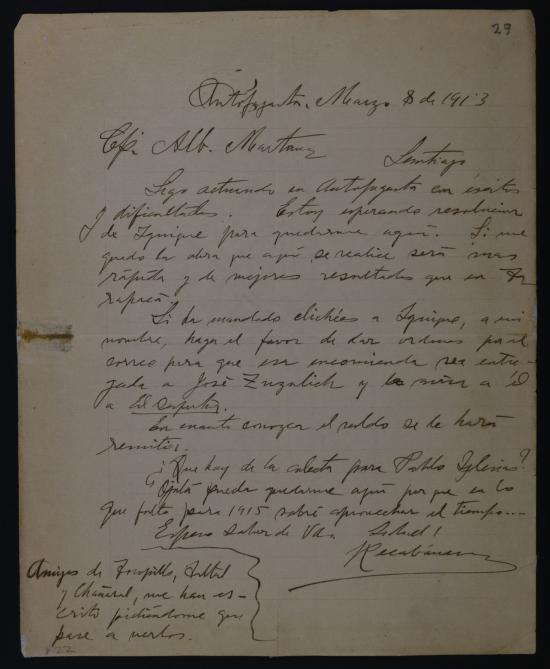 29
Antofagasta, Marzo 8 de 1913
Cp. Alb. Martinez
Santiago
Sigo actuando en Antofagasta con éxitos
y dificultades. Estoy esperando resolucion
de Iquique para quedarme aquí. Si me
quedo la obra que aquí se realice será mas
rápida y de mejores resultados que en Ta-
rapacá.
Si ha mandado clichées a Iquique, a mi
nombre, haga el favor de dar ordenes por el
correo para que esa encomienda sea entre-
gada a José Zuzulich y a él
a El
En cuanto conozca el saldo se le hará
remitir.
¿Que hay de la colecta para Pablo Iglesias?
Ojalá pueda quedarme aquí por que en lo
que falta para 1915 sabré aprovechar el tiempo...
Espero saber de Vd. Salud!
Recabarren
Amigos de Tocopilla, Taltal
y Chañaral, me han es-
crito pidiéndome que
pase a verlos.
22